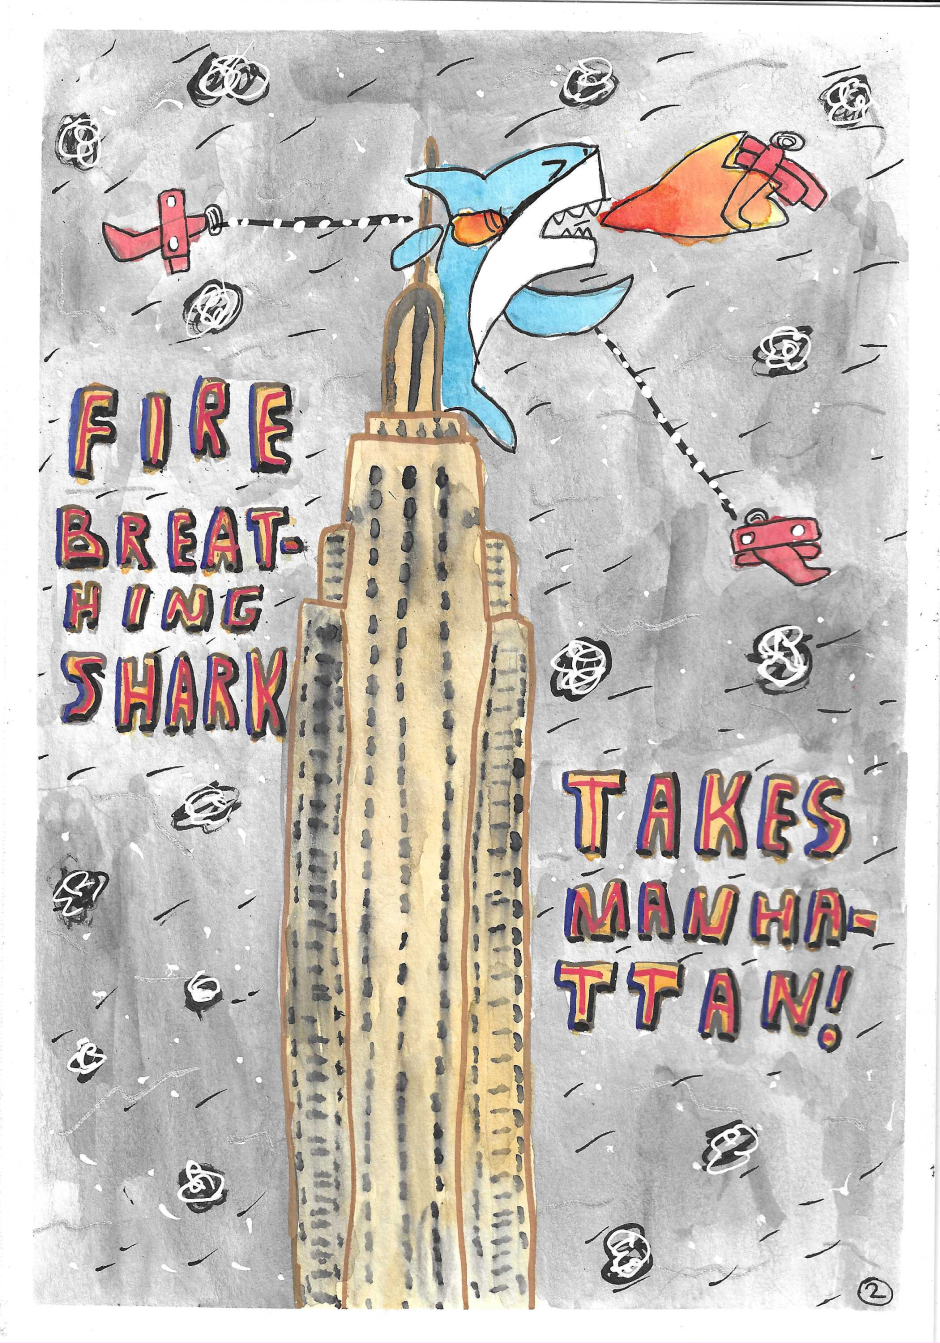 FIRE
BREAT-
HING
SHARK
TAKES
MANHA-
TTAN!
2